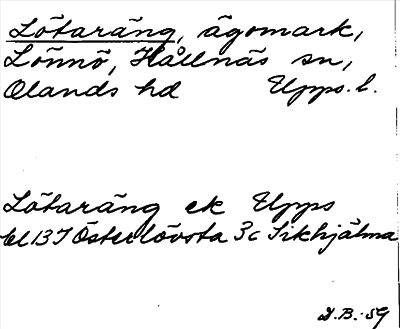 Lötaräng, ägomark,
Lönnö, Hållnäs sn,
Olands hd Upps. l.
Lötaräng ek Upps
bl 13 I Österlövsta 3c Sikhjälma
D.B. 59